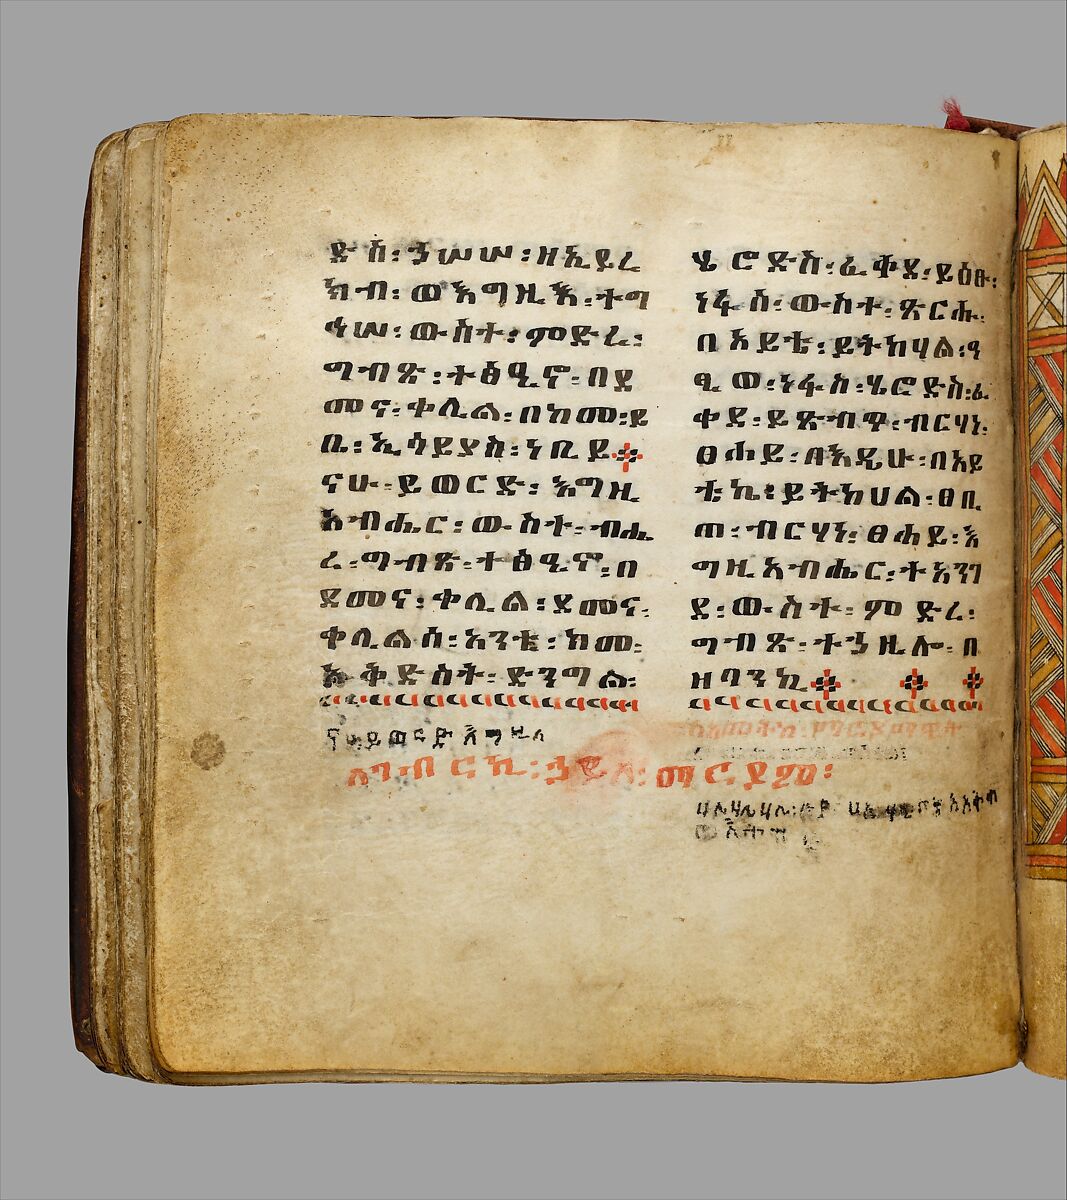 ድስ፡ ኃሠሠ፡ ዘኢይረ
ክብ፡ ወእግዚእ፡ ተግ
ኅሠ፡ ውስተ፡ ምድረ፡
ግብጽ፡ ተፅዒኖ፡ በደ
መና፡ ቀሊል፡ በከመ፡ ይ
ቤ፡ ኢሳይያስ፡ ነቢይ
ናሁ፡ ይወርድ፡ እግዚ
አብሔር፡ ውስተ፡ ብሔ
ረ፡ ግብጽ፡ ተፅዒኖ፡ በ
ደመና፡ ቀሊል፡ ደመና፡
ቀሊልሰ፡ አንቲ፡ ከመ፡
እቅድስት፡ ድንግል፡
ሄሮድስ፡ ፈቀደ፡ ይዕፁ፡
ነፋሰ፡ ውስተ፡ ጽርሑ፡
በአይቴ፡ ይትከሃል፡ ዓ
ፂወ፡ ነፋስ፡ ሄሮድስ፡ ፈ
ቀደ፡ ይጽብጥ፡ ብርሃነ፡
ፀሐይ፡ በእዴሁ፡ በአይ
ቴኬ፡ ይትከሀል፡ ፀቢ
ጠ፡ ብርሃነ፡ ፀሐይ፡ እ
ግዚአብሔር፡ ተአንገ
ደ፡ ውስተ፡ ምድረ፡
ግብጽ፡ ተኃዚሎ፡ በ
ዘባንኪ
ናሁ ይወርድ እግዚአ
ማርያም፡